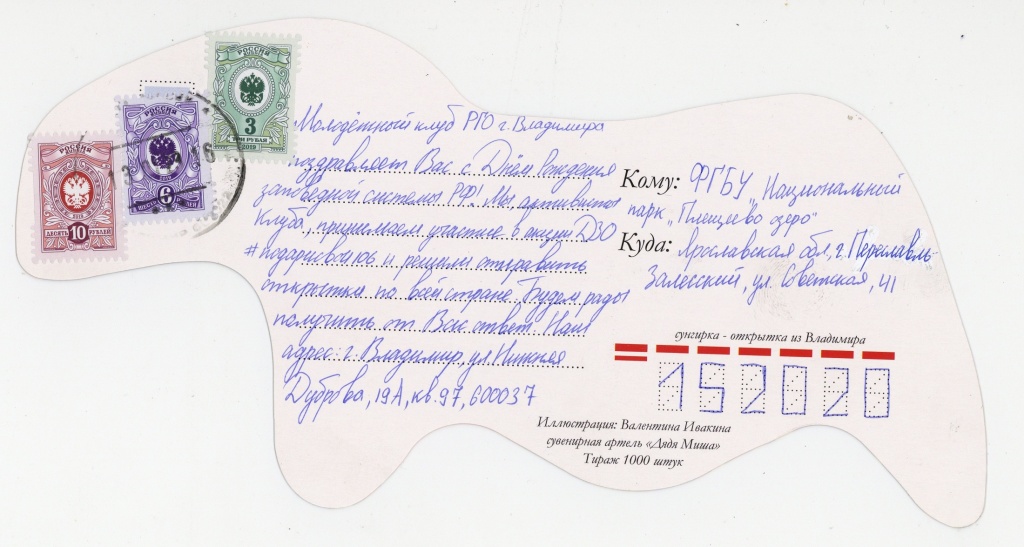 РОССИЯ
3
ТРИ РУБЛЯ
2019
РОССИЯ
6
ШЕСТЬ РУБЛЕЙ
РОССИЯ
10
ДЕСЯТЬ РУБЛЕЙ
Молодёжный клуб РГО г. Владимира
поздравляет Вас с Днём Рождения
заповедной системы РФ! Мы, активисты
клуба, принимаем участие в акции ДЗО
и решили отправить
открытки по всей стране. Будем рады
получить от Вас ответ. Наш
адрес: г. Владимир, ул. Нижняя
Дуброва, 19А, кв. 97, 600037
Кому: ФГБУ „Национальний
парк „Плещеево озеро"
Куда: Ярославская обл., г. Переславль-
Залесский, ул. Советская, 41
сунгирка - открытка из Владимира
152020
Иллюстрация: Валентина Ивакина
сувенирная артель «Дядя Миша»
Тираж 1000 штук